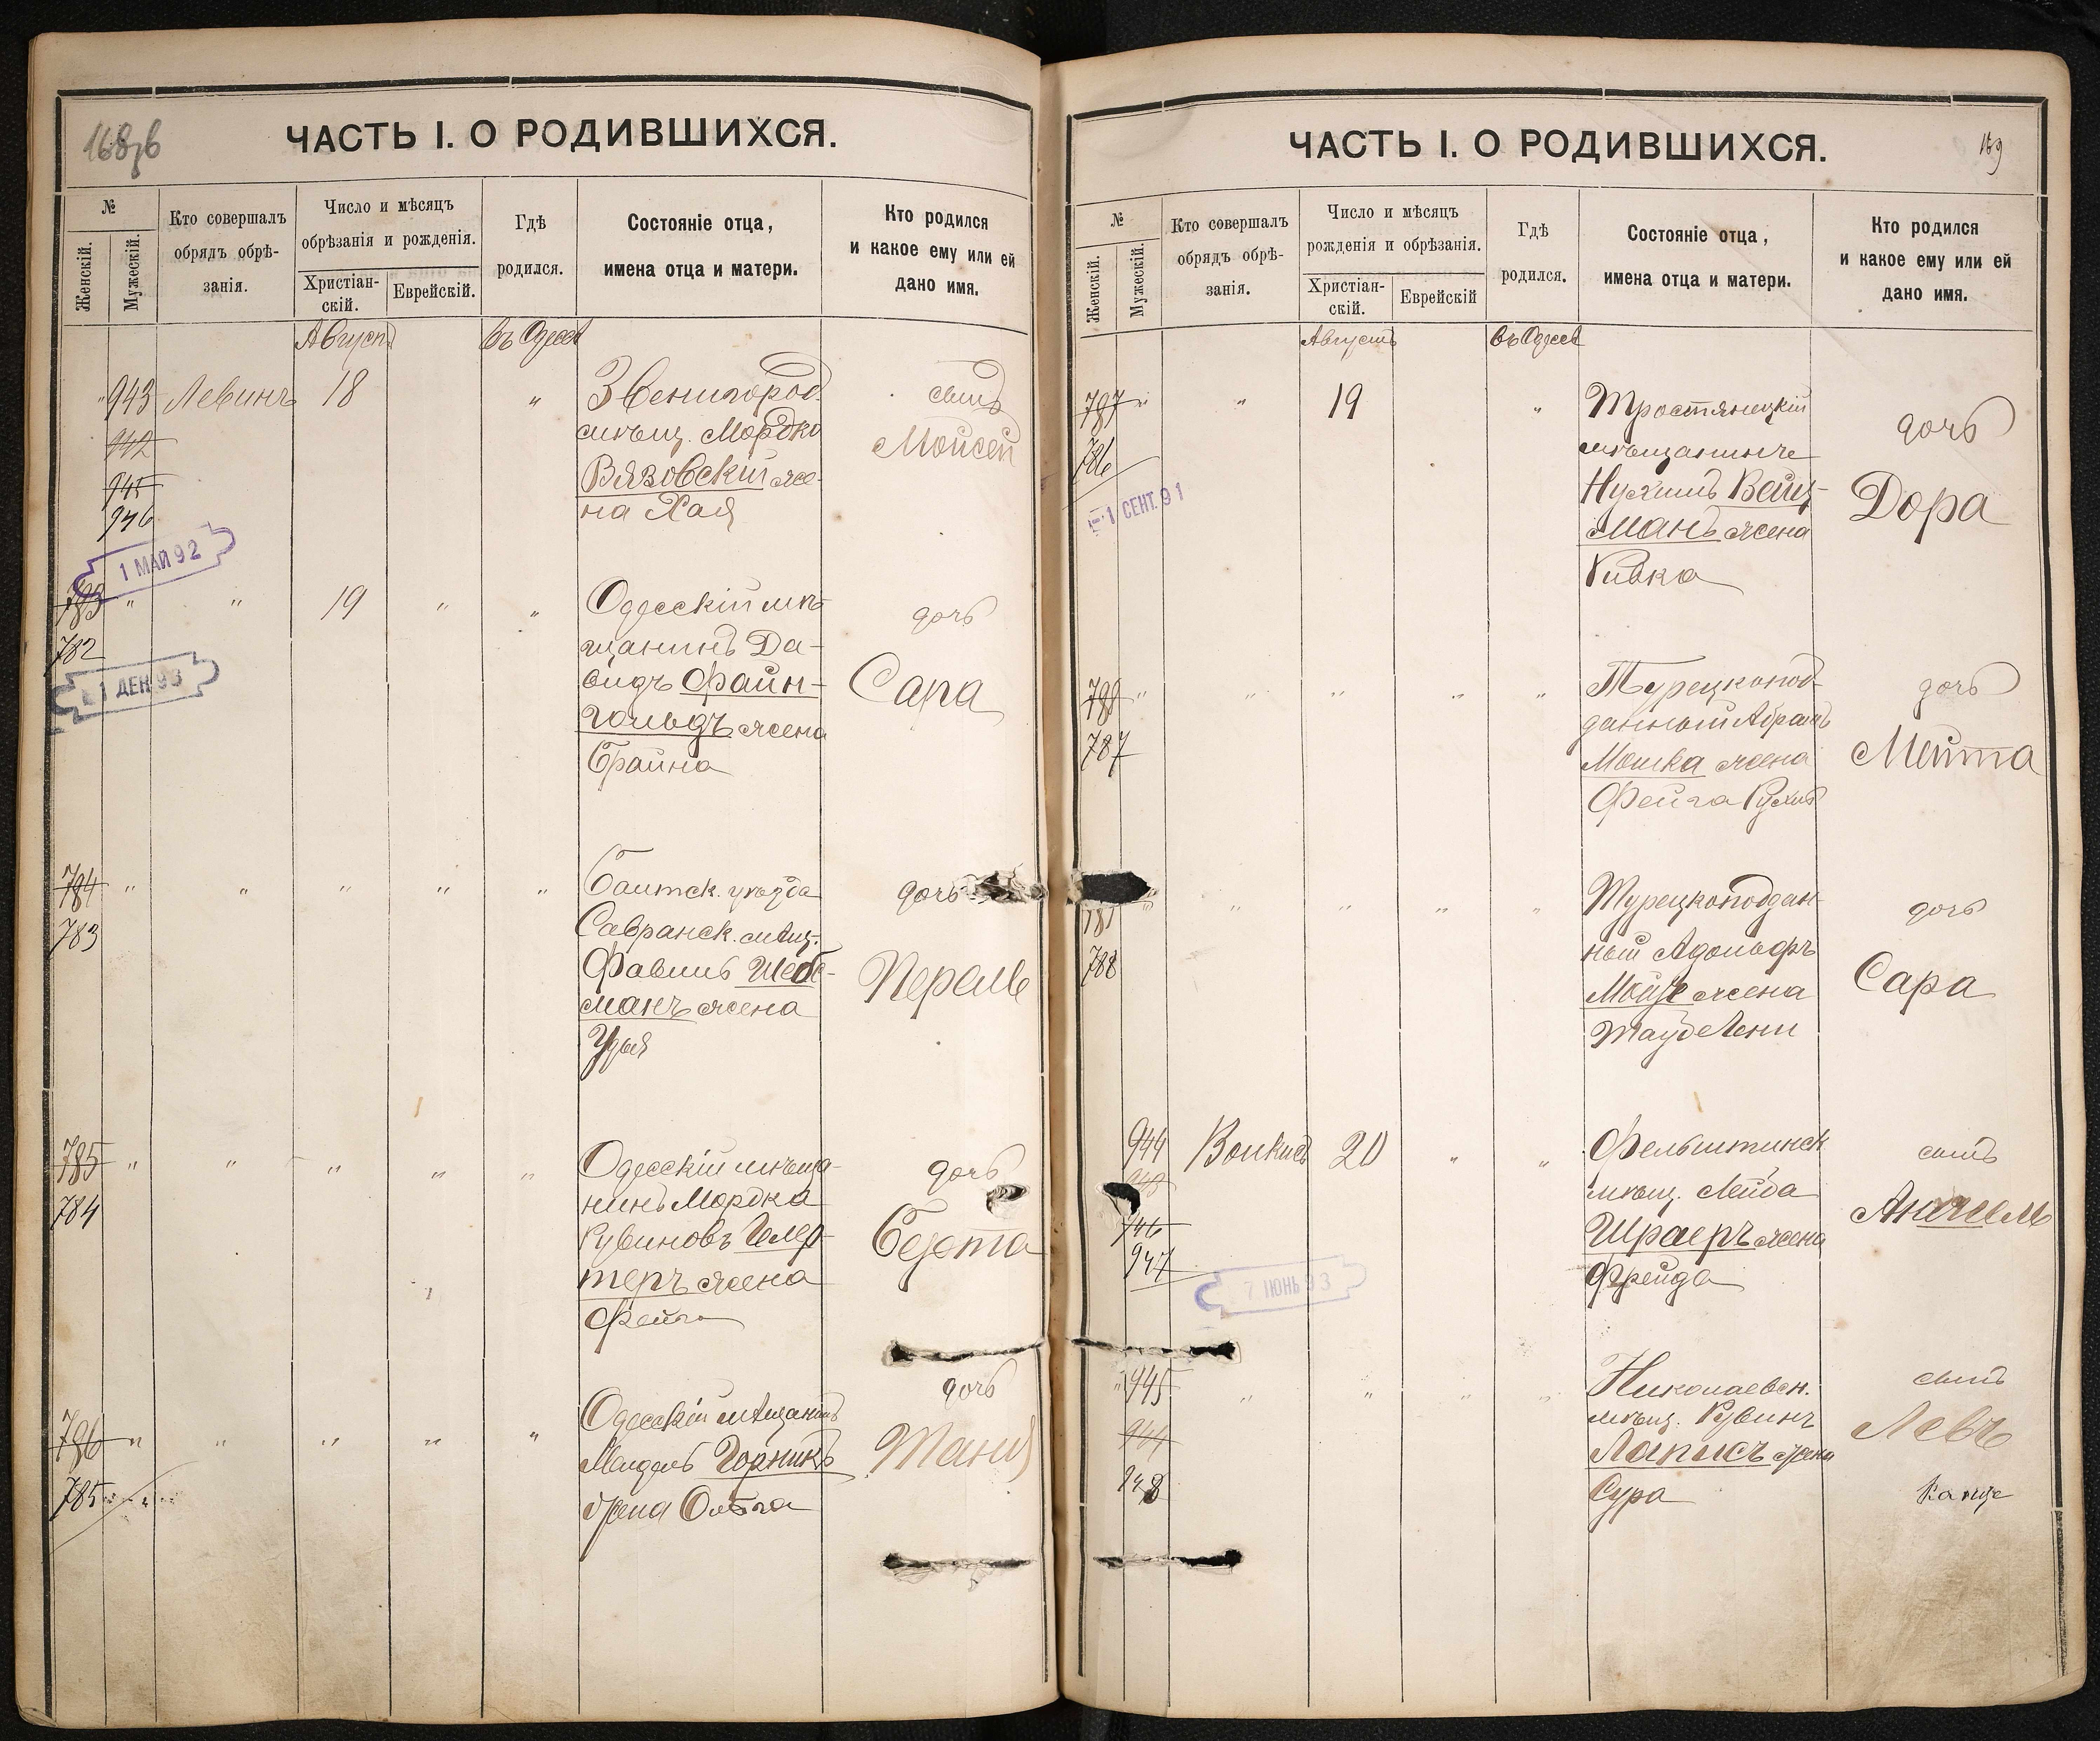 168об
ЧАСТЬ I. О РОДИВШИХСЯ.
№
Женскій.
Мужескій.
Кто совершалъ
обрядъ обрѣ-
занія.
Число и мѣсяцъ
обрѣзанія и рожденія.
Христіан-
скій.
Еврейскій.
Гдѣ
родился.
Состояніе отца,
имена отца и матери.
Кто родился
и какое ему или ей
дано имя.
Августъ
въ Одессѣ
943 Левинъ 18 " Звенигород.
сынъ
942
мѣщ. Мордко
Моисей
945
Вязовскій же-
946
на Хая
1 МАЙ 92
783 " " 19 " " Одесскій мѣ-
дочь
782
щанинъ Да-
1 ДЕК 93
видъ Файн-
Сара
гольдъ жена
Брайна
784 " " " " " Балтск. уѣзда
дочь
783
Савранск. мѣщ.
Фавишъ
Перель
манъ жена
Удья
785 " " " " " Одесскій мѣща-
дочь
784
нинъ Мордка
Рувиновъ
Бейта
теръ жена
Фейга
дочь
786 " " " " " Одесскій мѣщанинъ
785
Мендель Горникъ
Таня
жена Ольга
169
ЧАСТЬ I. О РОДИВШИХСЯ.
№
Женскій.
Мужескій.
Кто совершалъ
обрядъ обрѣ-
занія.
Число и мѣсяцъ
рожденія и обрѣзанія.
Христіан-
скій.
Еврейскій
Гдѣ
родился.
Состояніе отца,
имена отца и матери.
Кто родился
и какое ему или ей
дано имя.
Августъ
въ Одессѣ
787 " " 19 " Тростянецкій
дочь
786
мѣщанинъ
1 СЕНТ. 91
Нухимъ Вейц-
Дора
манъ жена
Ривка
788 " " " " " Турецкопод-
дочь
787
данный Абрамъ
Мошка жена
Мейта
Фейга Рухля
" " " " " Турецкоподдан-
дочь
788
ный Адольфъ
Мойзе жена
Сара
944 Волкисъ 20 " " Фельштинск
сынъ
мѣщ. Лейба
946
Шраеръ жена
Анчель
947
Фрейда
7 ІЮНЬ 93
" 945 " " " " Николаевск.
сынъ
944
мѣщ. Рувинъ
Левъ
948
Лаписъ жена
Сура